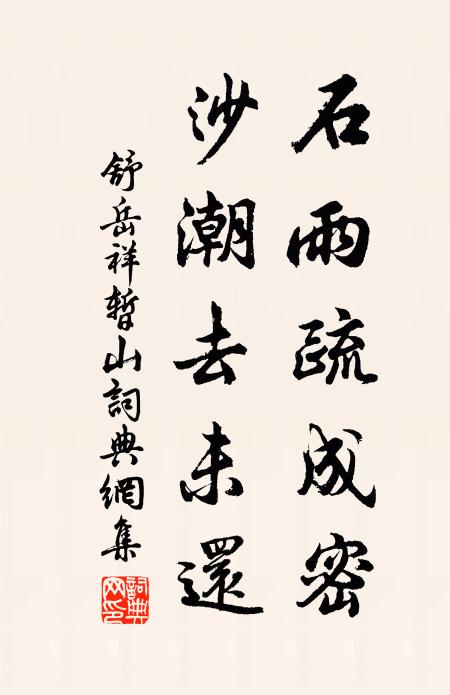 石雨疏成密
沙潮去未還
舒岳祥暂山詞典網集
詞典網印